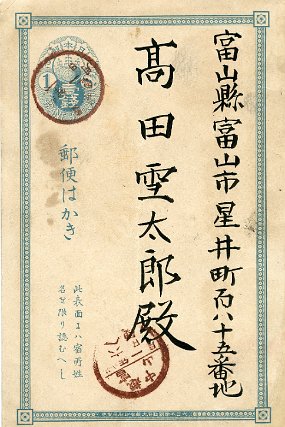 富山縣富山市星井町百八十五番地
髙田雪太郎殿
1
壹錢
郵便はかき
此表面ニハ宿所姓
名ヲ限リ認ムヘシ